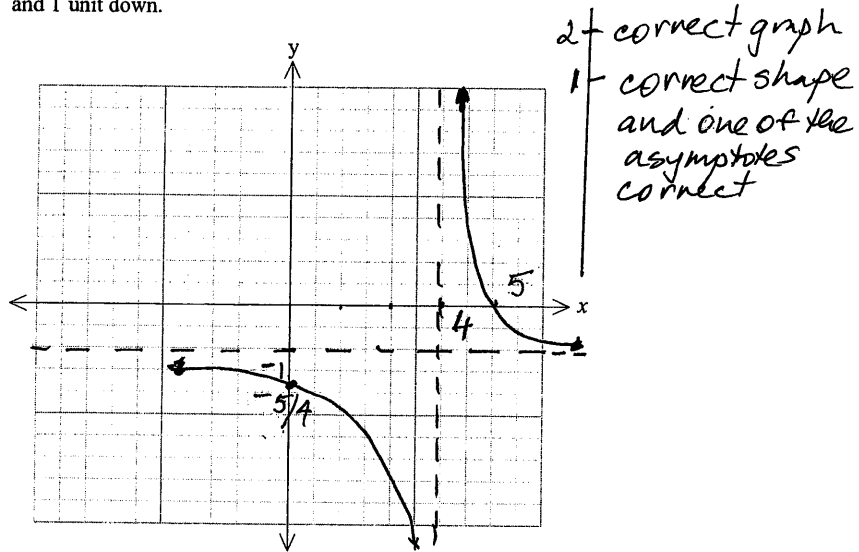 and 1 unit down.
y
2 - correct graph
1 - correct shape
and one of the
asymptotes
correct
5
x
4
-1
-5/4